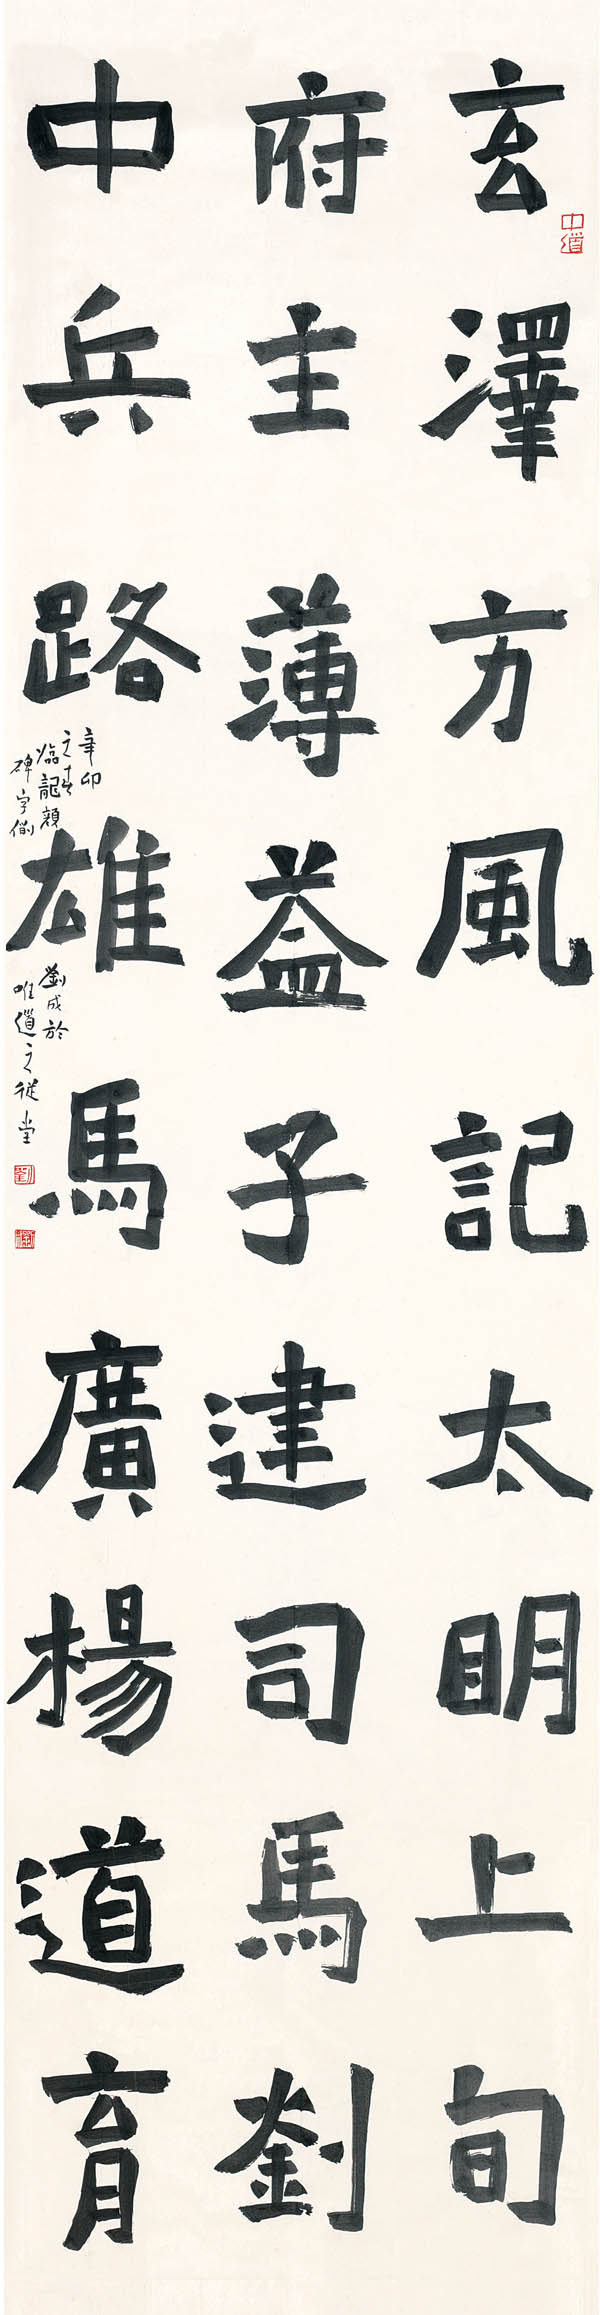 玄澤方風記太眀上旬
府主薄益子建司馬劉
中兵路雄馬廣楊道育
辛卯
之春
臨龍顏
碑字
劉成於
唯道之從堂
中道
劉